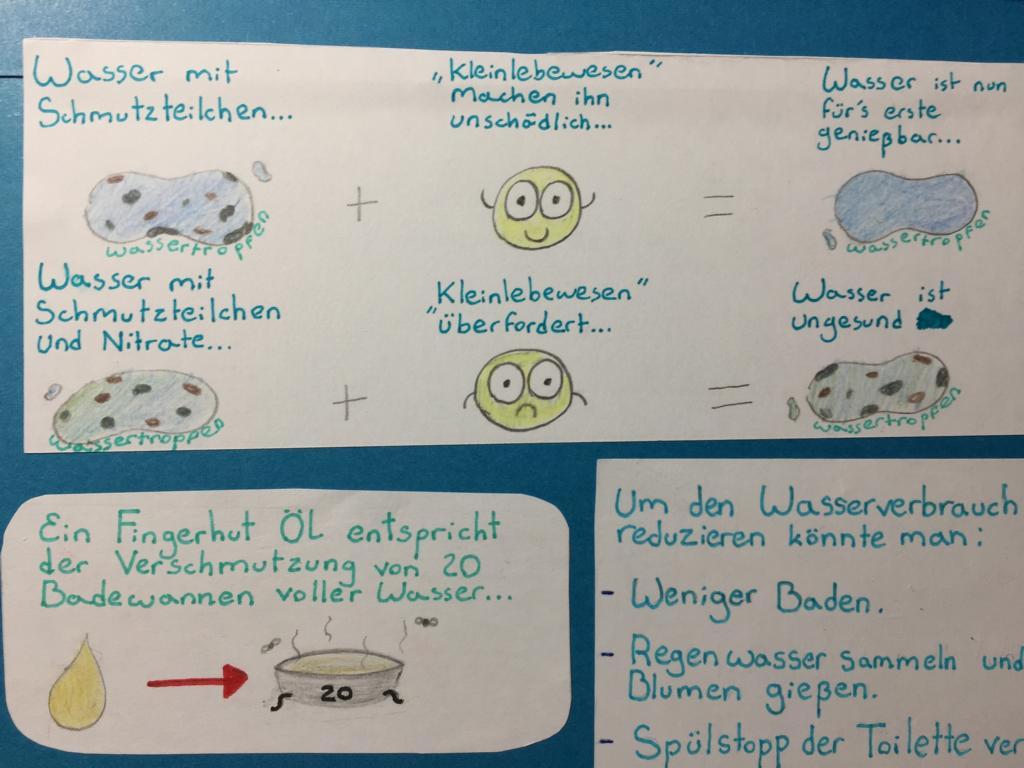 Wasser mit
Schmutzteilchen...
„Kleinlebewesen“
machen ihn
unschädlich...
Wasser ist nun
für's erste
genießbar...
wassertropfen
+
=
wassertropfen
Wasser mit
Schmutzteilchen
und Nitrate...
Kleinlebewesen"
"überfordert...
Wasser ist
ungesund
wassertropfen
+
=
wassertropfen
Ein Fingerhut Öl entspricht
der Verschmutzung von 20
Badewannen voller Wasser...
20
Um den Wasserverbrauch
reduzieren könnte man:
- Weniger Baden.
- Regenwasser sammeln und
Blumen gießen.
- Spülstopp der Toilette ver